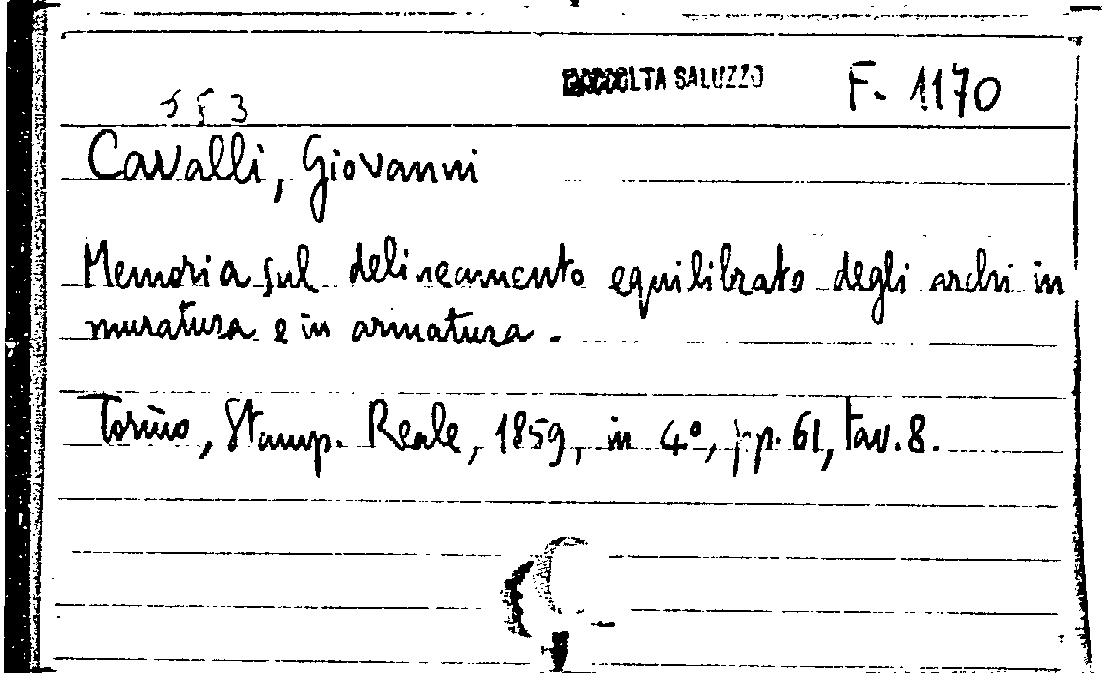 RACCOLTA SALUZZO F. 1170
553
Cavalli, Giovanni
Memoria sul delineamento equilibrato degli archi in
muratura e in armatura.
Torino, Stamp. Reale, 1859, in 4°, pp. 61, tav. 8.